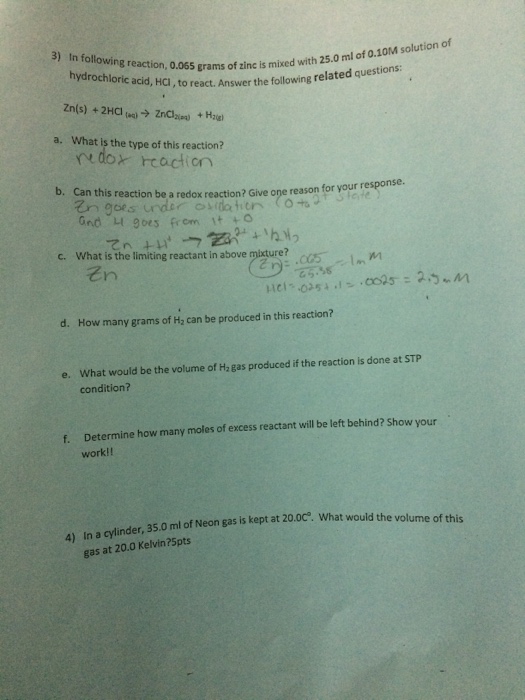 3) In following reaction, 0.065 grams of zinc is mixed with 25.0 ml of 0.10M solution of
hydrochloric acid, HCl, to react. Answer the following related questions:
Zn(s) + 2HCl (aq) → ZnCl2(aq) + H2(g)
a. What is the type of this reaction?
redox reaction
b. Can this reaction be a redox reaction? Give one reason for your response.
Zn goes under oxidation (0 to 2+ state)
and H goes from 1+ to 0
Zn + H+ → Zn2+ + 1/2 H2
c. What is the limiting reactant in above mixture?
Zn
Zn = .065 / 65.38 = 1mM
HCl = .025 × .1 = .0025 = 2.5mM
d. How many grams of H2 can be produced in this reaction?
e. What would be the volume of H2 gas produced if the reaction is done at STP
condition?
f. Determine how many moles of excess reactant will be left behind? Show your
work!!
4) In a cylinder, 35.0 ml of Neon gas is kept at 20.0C°. What would the volume of this
gas at 20.0 Kelvin?5pts